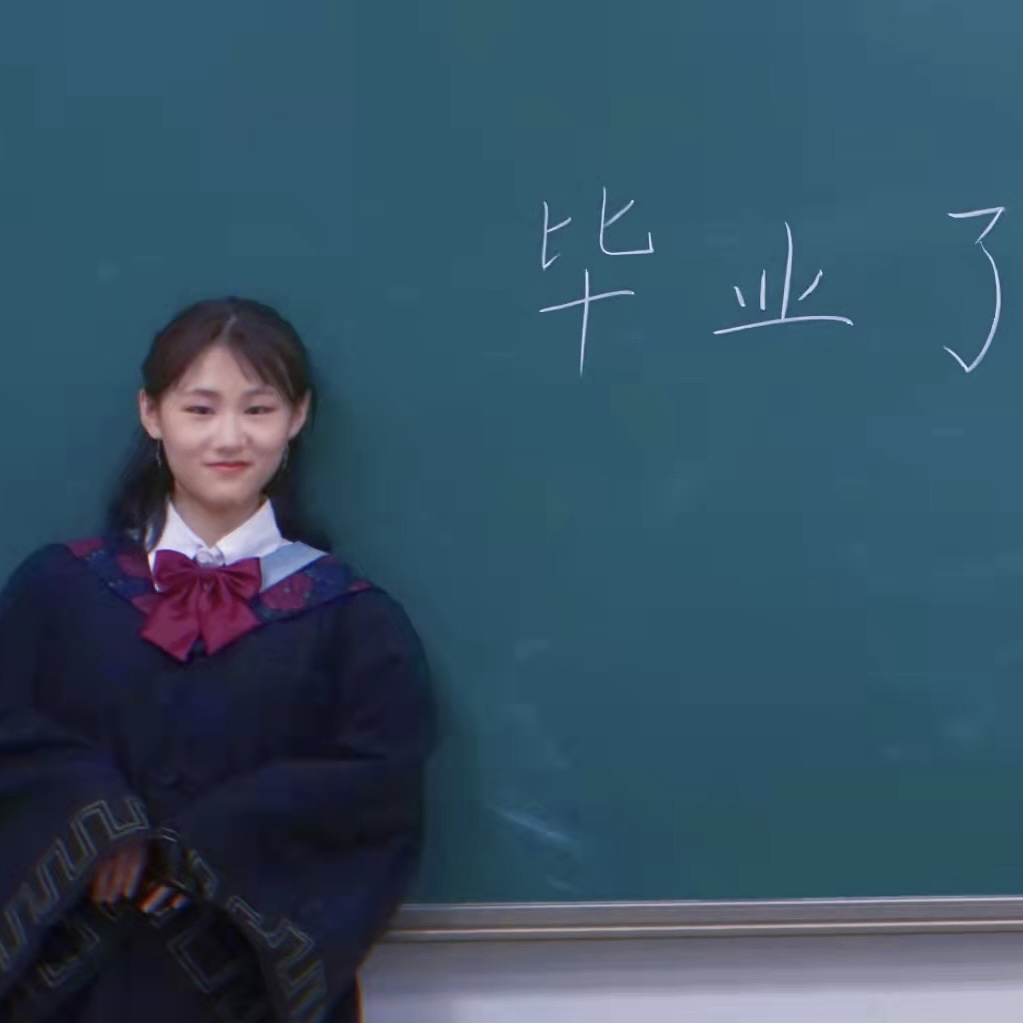 毕业了